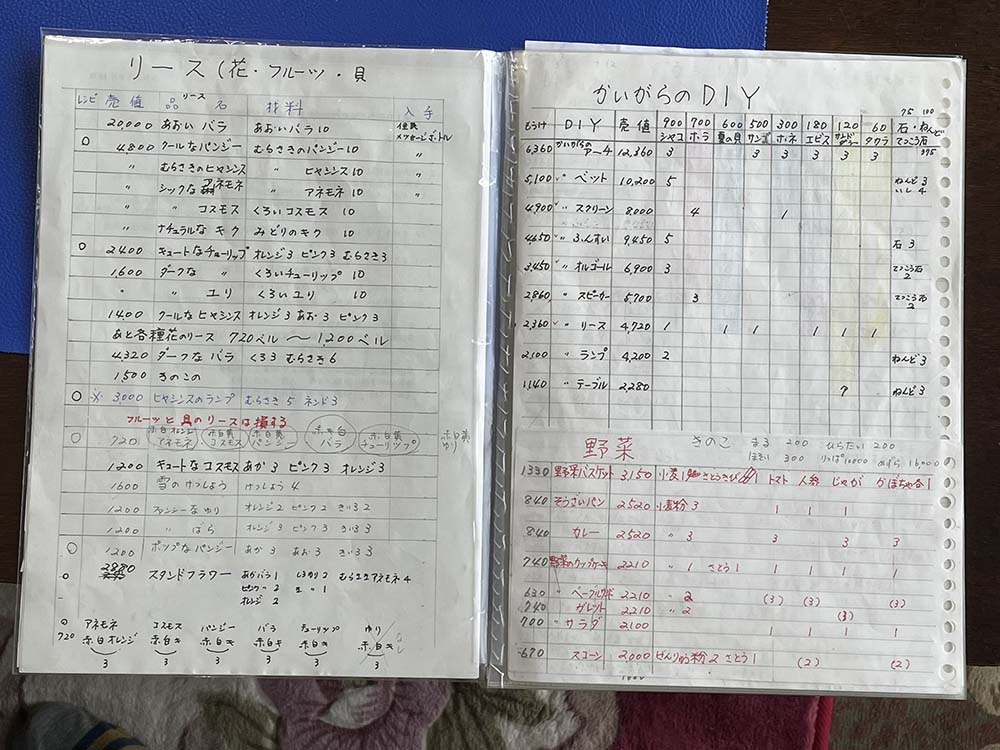 リース(花・フルーツ・貝
レシピ 売値 品 リース 名 材料 入手
20,000 あおい バラ あおいバラ10 住民 メッセージボトル
○ 4800 クールなパンジー むらさきのパンジー10 〃
〃 むらさきのヒヤシンス 〃 ヒヤシンス10 〃
〃 シックな アネモネ 〃 アネモネ10 〃
〃 〃 コスモス くろいコスモス 10
〃 ナチュラルな キク みどりのキク 10
○ 2400 キュートなチューリップ オレンジ3 ピンク3 むらさき3
1,600 ダークな 〃 くろいチューリップ 10
〃 〃 ユリ くろいユリ 10
1400 クールな ヒヤシンス オレンジ3 あお3 ピンク3
あと各種花のリース 720ベル 〜 1,200ベル
4,320 ダークな バラ くろ3 むらさき6
1,500 きのこの
○ ※ 3,000 ヒヤシンスのランプ むらさき5 ネンド3
フルーツと貝のリースは損する
○ 720 赤白オレンジ アネモネ 赤白黄 コスモス 赤白黄 パンジー 赤キ白 バラ 赤白黄 チューリップ 赤白黄 ゆり
1,200 キュートなコスモス あか3 ピンク3 オレンジ3
1600 雪のけっしょう けっしょう4
1200 ファンシーなゆり オレンジ2 ピンク2 きいろ2
1200 〃 ばら オレンジ3 ピンク3 きいろ3
○ 1200 ポップなパンジー あか3 あお3 きいろ3
○ 2880 スタンドフラワー あかバラ1 しろゆり2 むらさきアネモネ4
ピンク〃 2 〃 1
オレンジ 2
○ アネモネ コスモス パンジー バラ チューリップ ゆり
720 赤白オレンジ 赤白キ 赤白キ 赤白キ 赤白キ 赤白キ
3 3 3 3 3 3
かいがらのDIY
75 100
もうけ DIY 売値 900 700 600 500 300 180 120 60 石・ねんど
シャコ ホラ 夏の貝 サンゴ ホネ エビス サンドダラー タカラ てっこう石 375
6,360 かいがらの アーチ 12,360 3 3 3 3 3 3
5,100 〃 ベット 10,200 5 ねんど3 いし4
4,900 〃 スクリーン 8,000 4 1
4650 〃 ふんすい 9,450 5 石3
3,450 〃 オルゴール 6,900 3 てっこう石 2
2,860 〃 スピーカー 5,700 3 てっこう石 2
2,360 〃 リース 4,720 1 1 1 1 1 1
2,100 〃 ランプ 4,200 2 ねんど3
1,140 〃 テーブル 2,280 7 ねんど3
野菜 きのこ まる 200 ひらたい 200
ほそい 300 りっぱ10000 めずら 16,000
1330 野菜バスケット 3,150 小麦1 さとうきび 1 トマト 人参 じゃが かぼちゃ各1
840 そうさいパン 2520 小麦粉 3 1 1 1
840 カレー 2520 〃 3 3 3 3
740 野菜のカップケーキ 2210 〃 1 さとう1 1 1 1 1
630 〃 ベーグルサンド 2210 〃 2 (3) (3) (3)
740 ガレット 2210 〃 2 (3)
700 〃 サラダ 2100 1 1 1 1
670 スコーン 2,000 ぜんりゅう粉 2 さとう1 (2) (2)